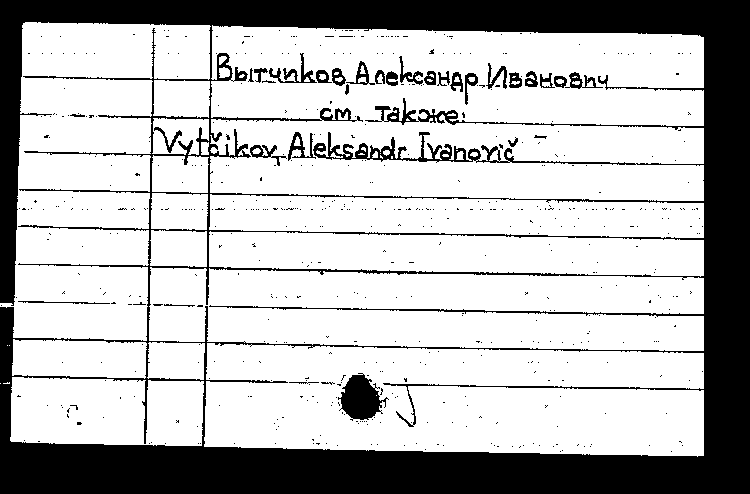 Вытчиков, Александр Иванович
см. также:
Vytčikov, Aleksandr Ivanovič